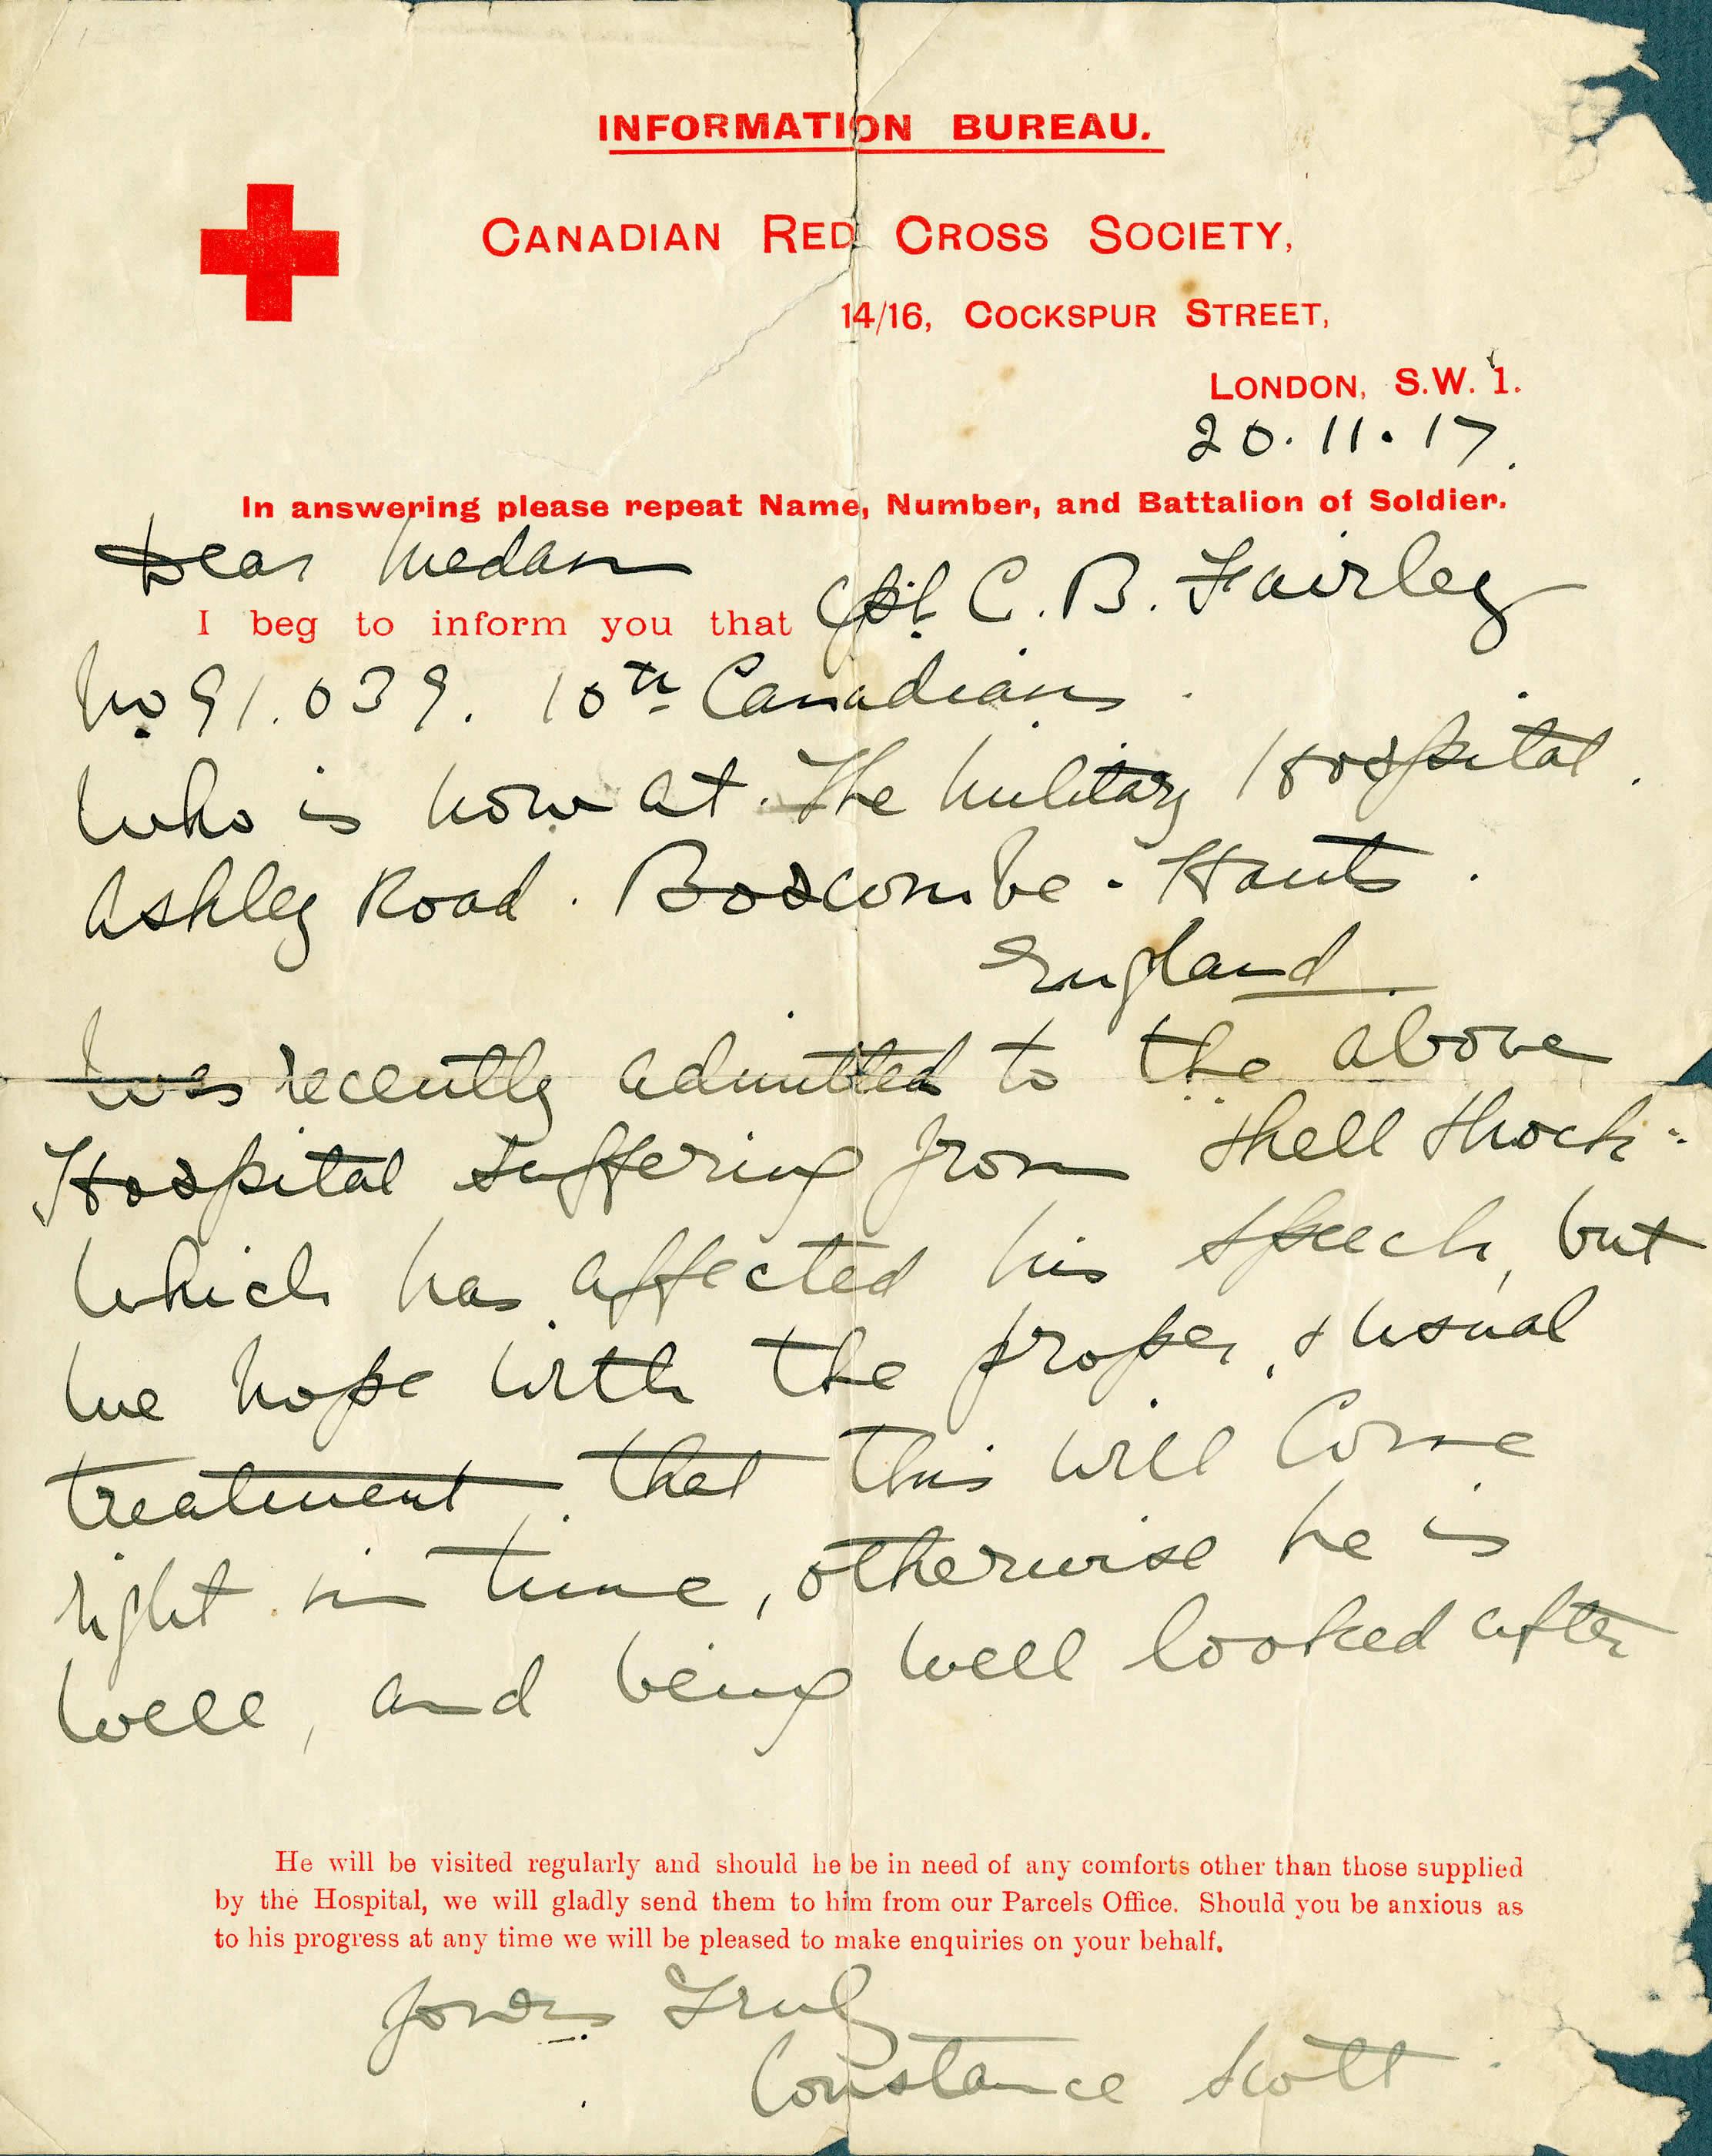 INFORMATION BUREAU.
CANADIAN RED CROSS SOCIETY,
14/16, COCKSPUR STREET,
LONDON, S.W. 1.
20.11.17.
In answering please repeat Name, Number, and Battalion of Soldier.
Dear Madam
I beg to inform you that Cpl C. B. Fairley
No 91.039. 10th Canadians.
Who is now at. The Military Hospital.
Ashley Road. Boscombe. Hants.
England.
Was recently admitted to the above
Hospital suffering from shell shock
which has affected his speech, but
we hope with the proper & usual
treatment that this will come
right in time, otherwise he is
well, and being well looked after
He will be visited regularly and should he be in need of any comforts other than those supplied
by the Hospital, we will gladly send them to him from our Parcels Office. Should you be anxious as
to his progress at any time we will be pleased to make enquiries on your behalf.
Yours Truly
Constance Scott